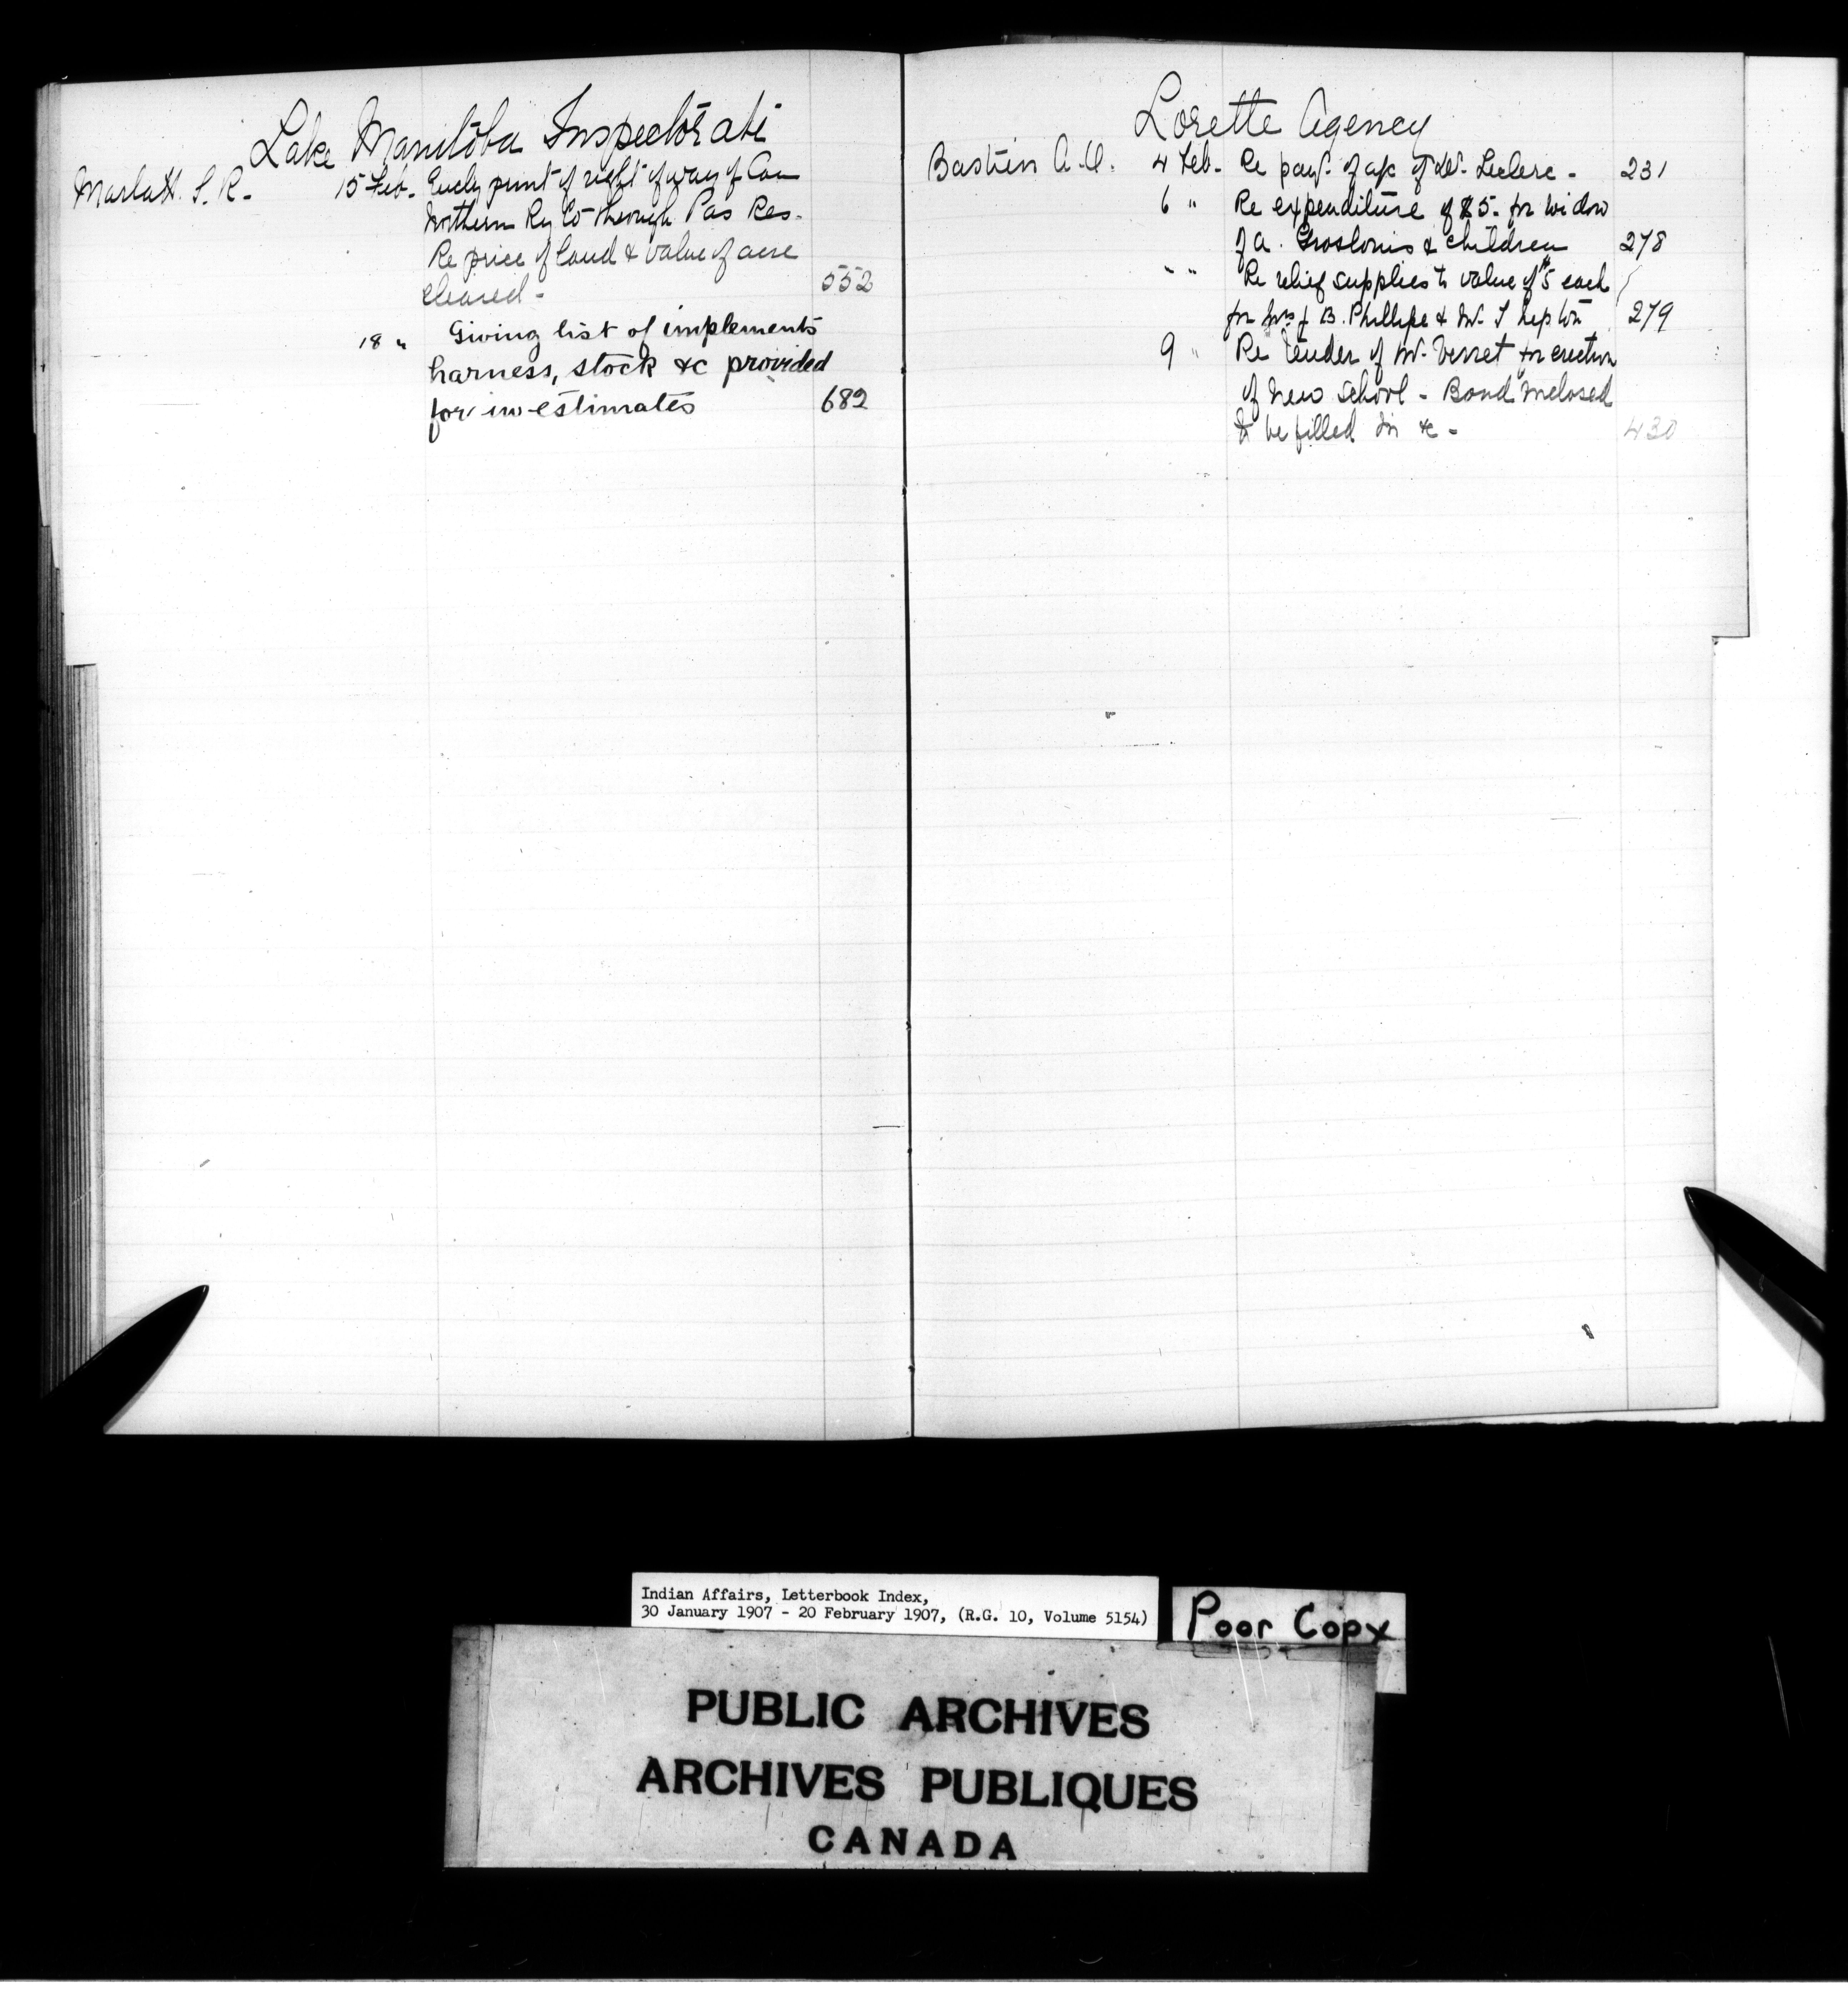 Lake Manitoba Inspectorate
Marlatt. S. R. 15 Feb. Encly print of right of way of Can
Northern Ry Co through Pas Res.
Re price of land & value of acre
cleared - 552
18 " Giving list of implements
harness, stock &c provided
for in estimates 682
Lorette Agency
Bastien A.O. 4 Feb. Re payt. of a/c of Dr. Leclerc - 231
6 " Re expenditure of $5. for widow
of A. Groslouis & children 278
" " Re relief supplies to value of $5 each
for Mrs J B. Phillipe & 279
9 " Re tender of Mr. Verret for erection
of new school - Bond inclosed
to be filled in &c - 430
Indian Affairs, Letterbook Index,
30 January 1907 - 20 February 1907, (R.G. 10, Volume 5154)
Poor Copy
PUBLIC ARCHIVES
ARCHIVES PUBLIQUES
CANADA